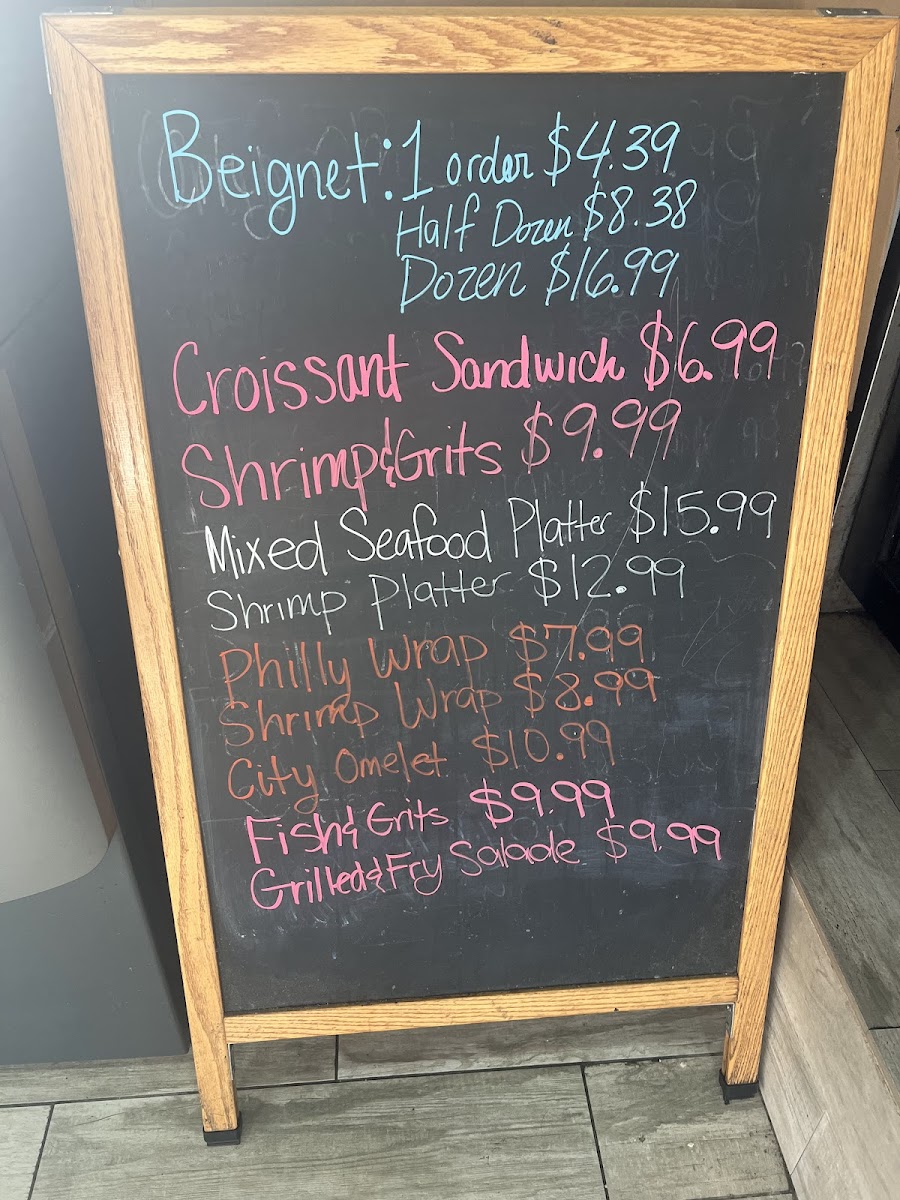 Beignet: 1 order $4.39
Half Dozen $8.38
Dozen $16.99
Croissant Sandwich $6.99
Shrimp&Grits $9.99
Mixed Seafood Platter $15.99
Shrimp Platter $12.99
Philly Wrap $7.99
Shrimp Wrap $8.99
City Omelet $10.99
Fish& Grits $9.99
Grilled&Fry Salade $9.99